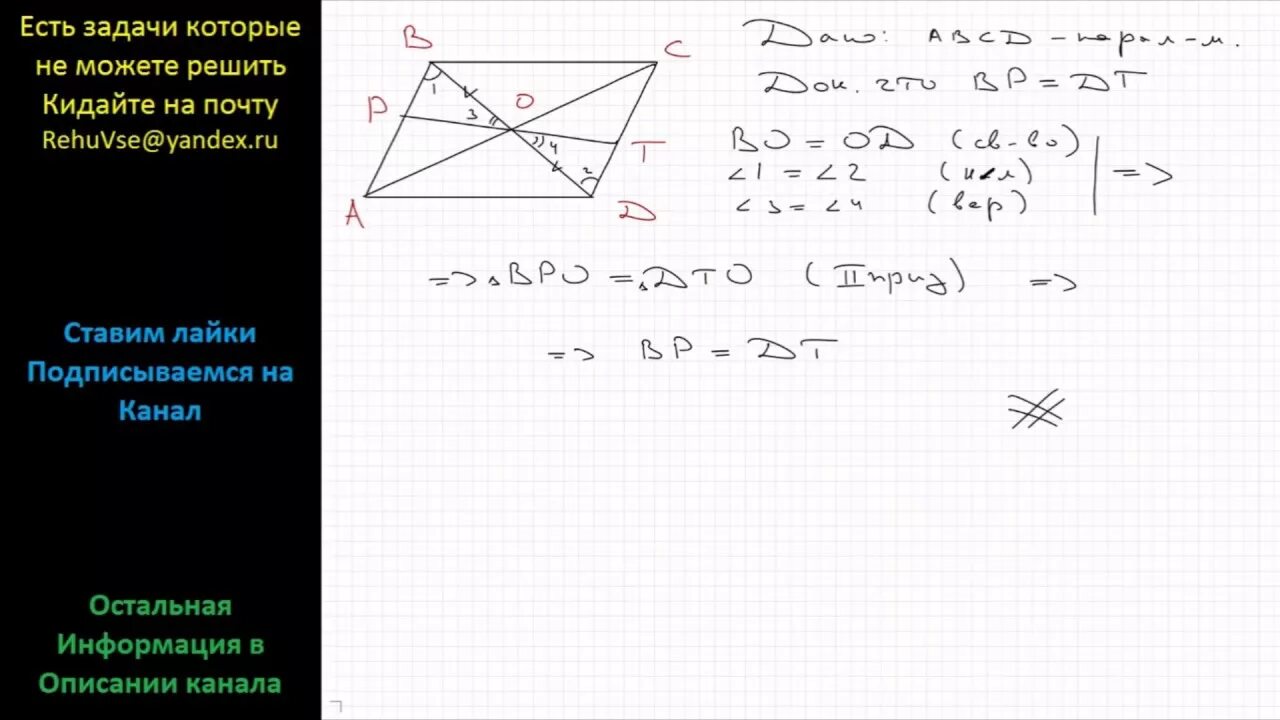 Есть задачи которые
не можете решить
Кидайте на почту
RehuVse@yandex.ru
Ставим лайки
Подписываемся на
Канал
Остальная
Информация в
Описании канала
B
C
P
1
3
O
4
T
2
A
D
Дано: ABCD - парал-м.
Док. что BP = DT
BO = OD (св-во)
∠1 = ∠2 (нкл)
∠3 = ∠4 (вер)
=>
=> ΔBPO = ΔDTO (II приз) =>
=> BP = DT